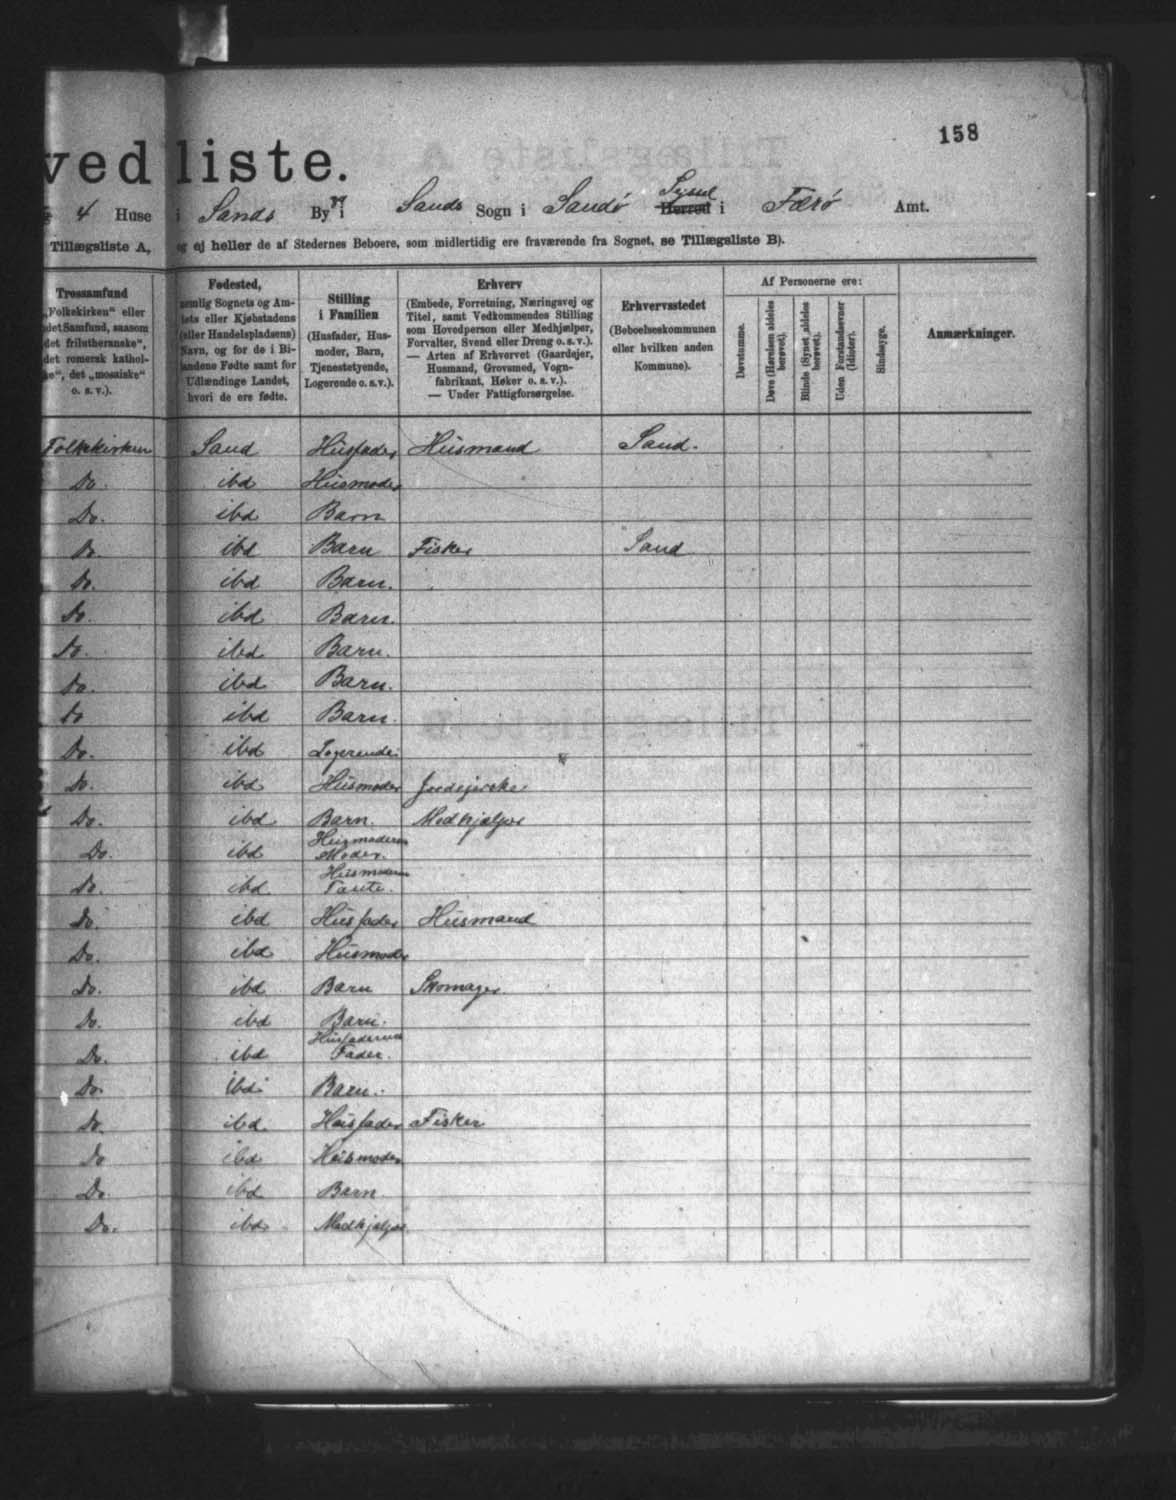 158
vedliste.
4 Huse i Sands By i Sands Sogn i Sandø Syssel Herred i Færø Amt.
Tillægsliste A, og ej heller de af Stedernes Beboere, som midlertidig ere fraværende fra Sognet, se Tillægsliste B).
Trossamfund
„Folkekirken" eller
det Samfund, saasom
det frilutheranske",
det romersk kathol-
ke", det „mosaiske"
o. s. v.).
Fødested,
nemlig Sognets og Am-
tets eller Kjøbstadens
(eller Handelspladsens)
Navn, og for de i Bi-
landene Fødte samt for
Udlændinge Landet,
hvori de ere fødte.
Stilling
i Familien
(Husfader, Hus-
moder, Barn,
Tjenestetyende,
Logerende o. s. v.).
Erhverv
(Embede, Forretning, Næringsvej og
Titel, samt Vedkommendes Stilling
som Hovedperson eller Medhjælper,
Forvalter, Svend eller Dreng o. s. v.).
— Arten af Erhvervet (Gaardejer,
Husmand, Grovsmed, Vogn-
fabrikant, Høker o. s. v.).
— Under Fattigforsørgelse.
Erhvervsstedet
(Beboelseskommunen
eller hvilken anden
Kommune).
Af Personerne ere:
Døvstumme.
Døve (Hørelsen aldeles
berøvet).
Blinde (Synet aldeles
berøvet).
Uden Forstandsevner
(Idioter).
Sindssyge.
Anmærkninger.
Folkekirken Sand Husfader Husmand Sand.
Do. ibd Husmoder
Do. ibd Barn
Do. ibd Barn Fisker Sand
Do. ibd Barn.
Do. ibd Barn.
Do. ibd Barn.
Do. ibd Barn.
Do ibd Barn.
Do. ibd Logerende
Do. ibd Husmoder Jordejerske
Do. ibd. Barn. Medhjælper
Do. ibd Husmoderens Moder.
Do. ibd. Husmoderens Tante.
Do. ibd Husfader Husmand
Do. ibd Husmoder
Do. ibd Barn Skomager
Do. ibd Barn.
Do. ibd Husfaderens Fader.
Do. ibd Barn.
Do. ibd. Husfader Fisker
Do ibd Husmoder
Do. ibd Barn
Do. ibd. Medhjælper